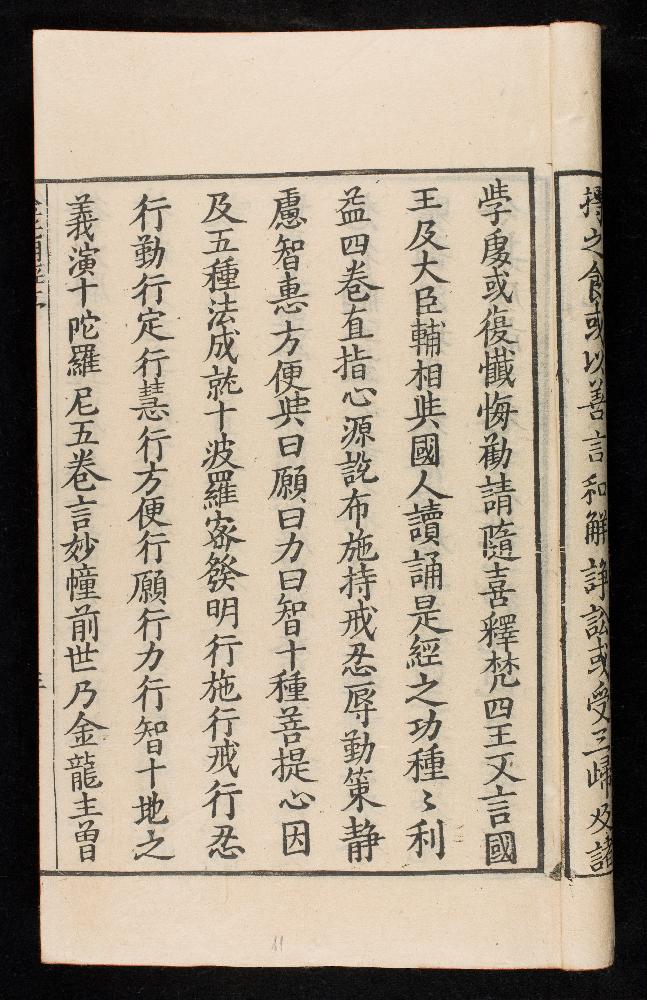 摶之食或以善言和解諍訟或受三㱕及諸
學處或復懺悔勸請隨喜釋梵四王又言國
王及大臣輔相與國人讀誦是經之功種〻利
益四卷直指心源說布施持戒忍辱勤策静
慮智惠方便與曰願曰力曰智十種菩提心因
及五種法成就十波羅宻發明行施行戒行忍
行勤行定行慧行方便行願行力行智十地之
義演十陀羅尼五卷言妙幢前世乃金龍主曾
11